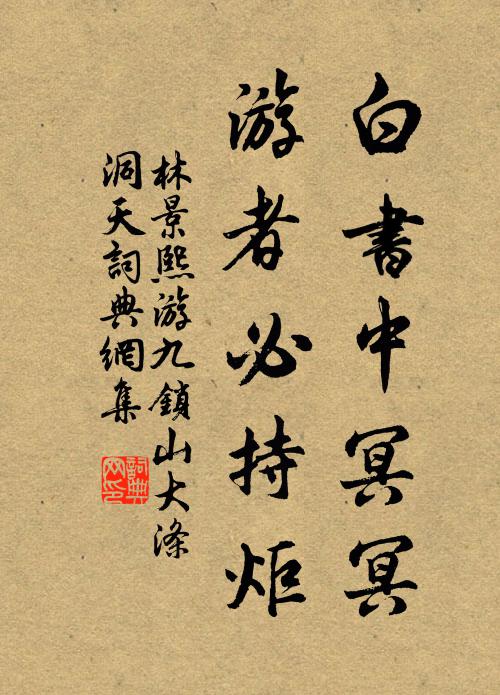 白書中冥冥
游者必持炬
林景熙游九鎖山大滌
洞天詞典網集
詞典
网印